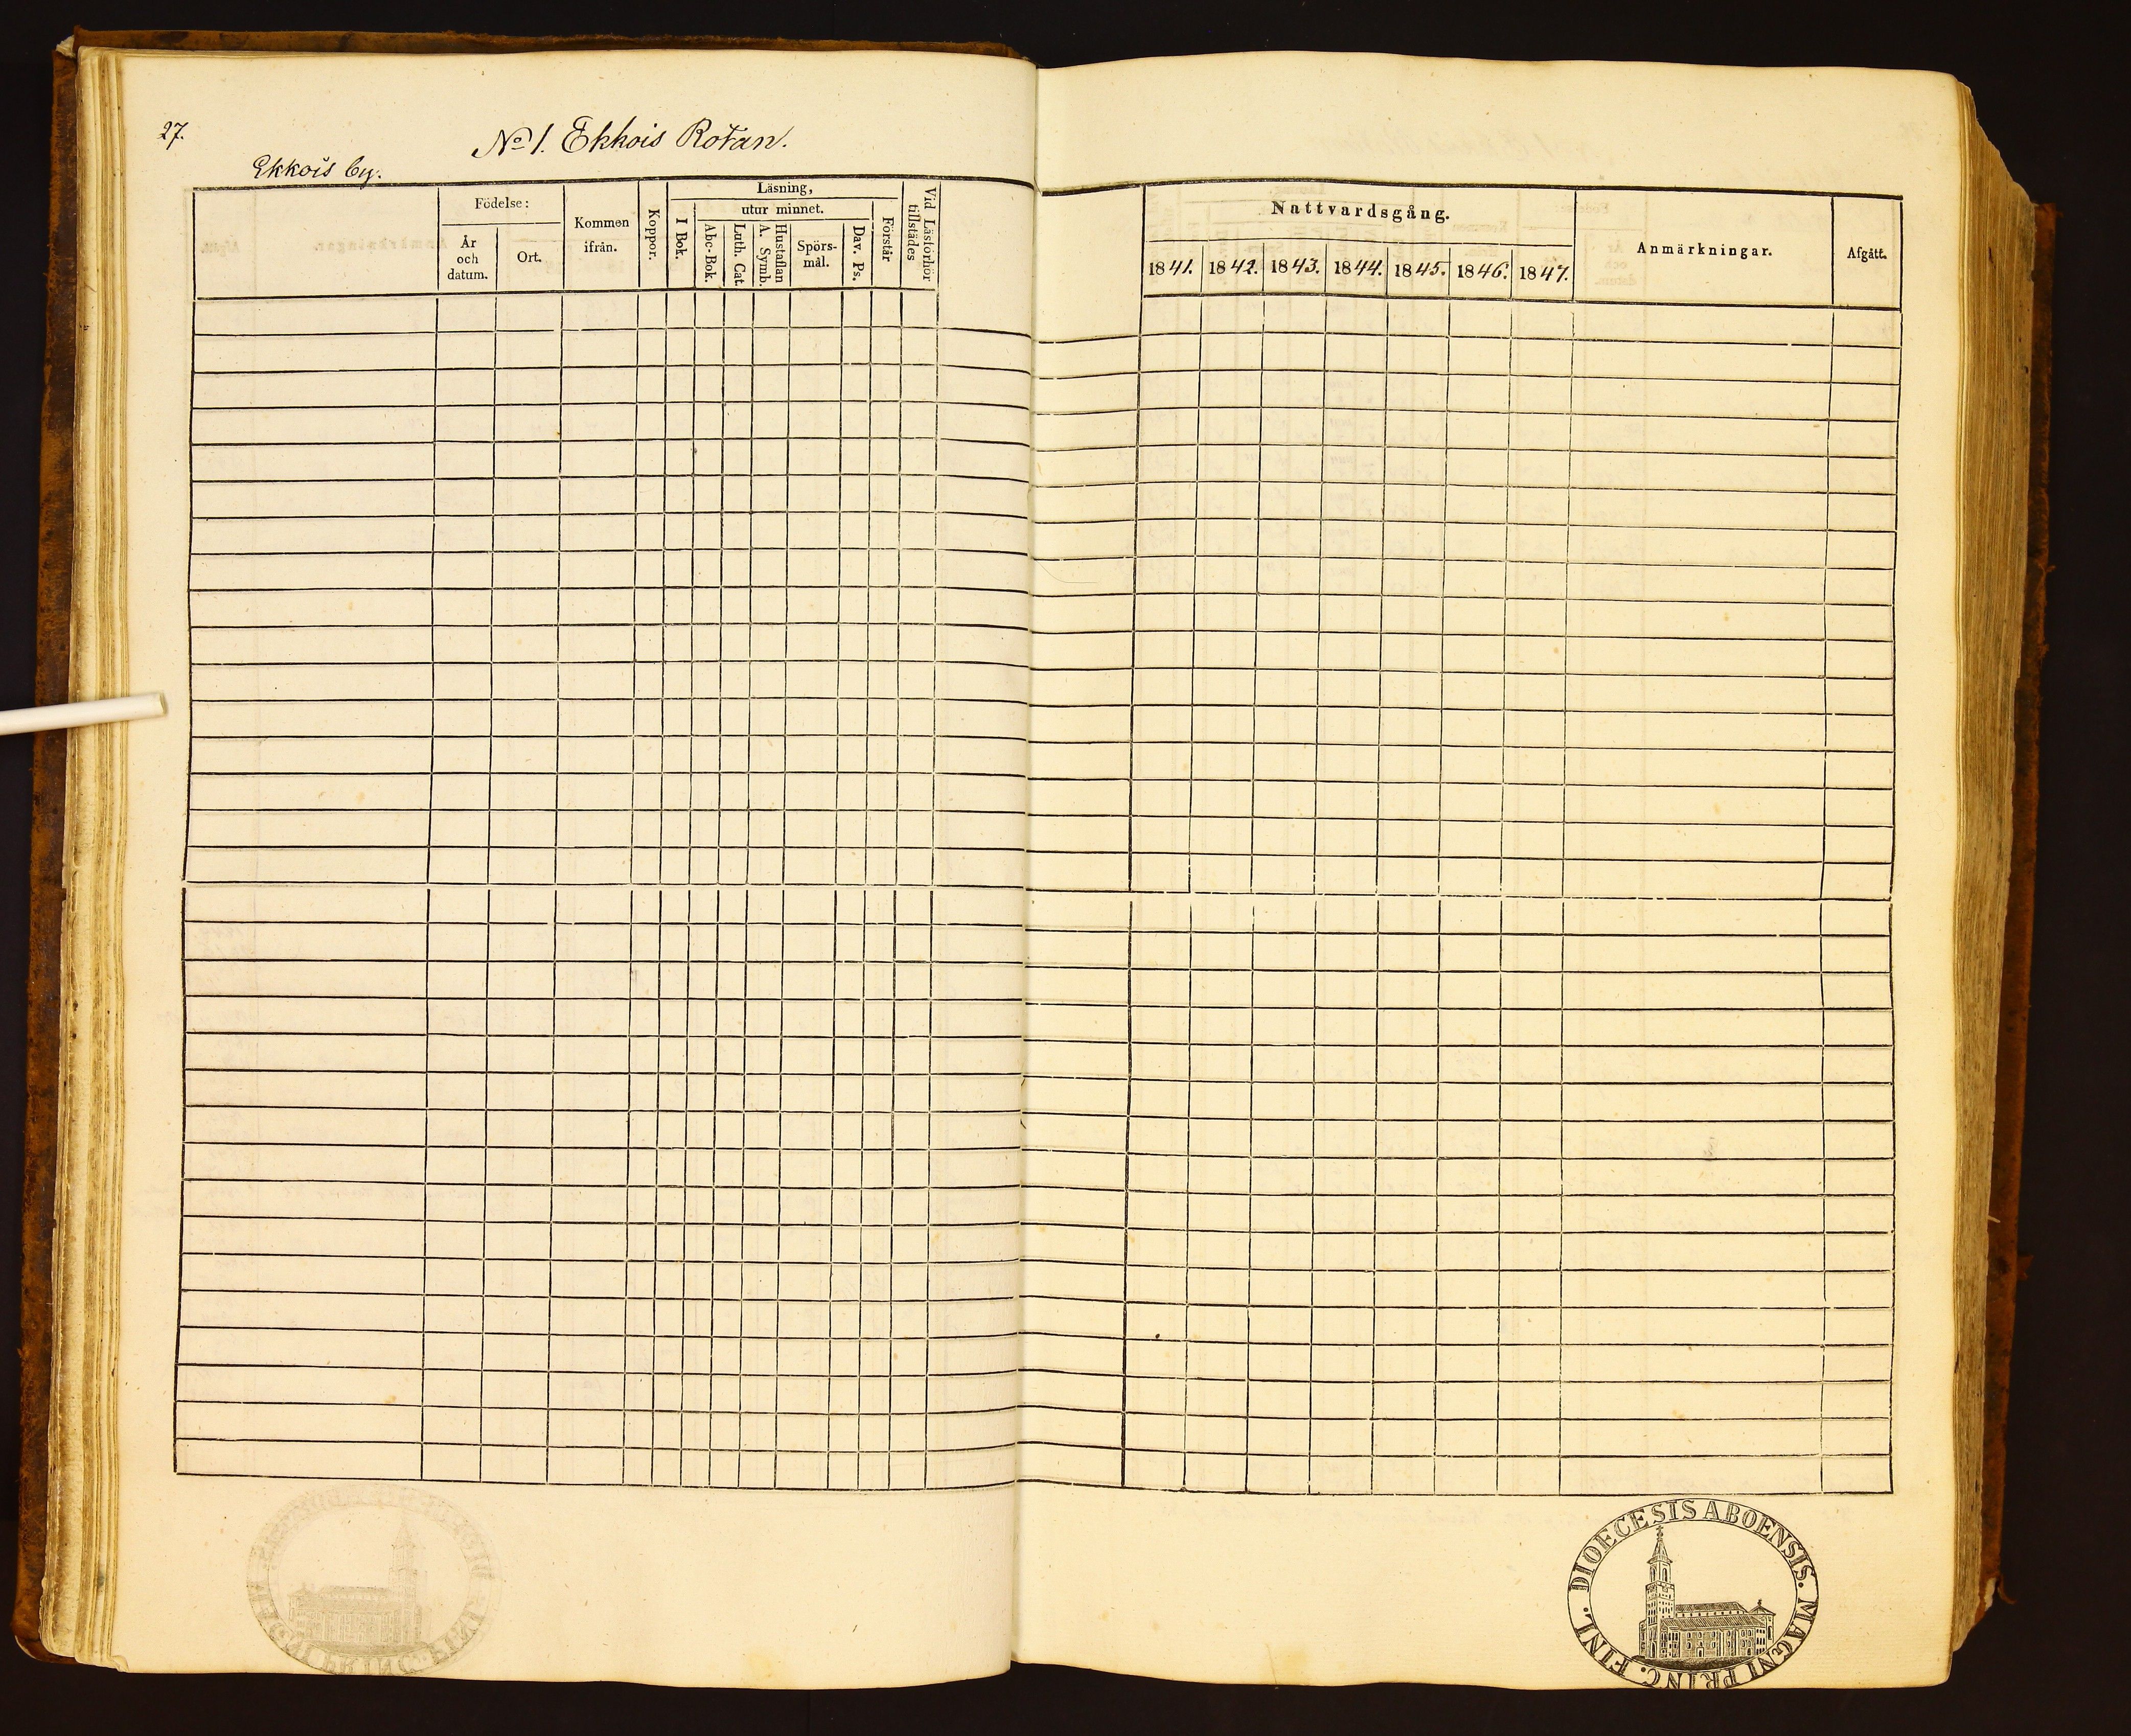 27.
No 1. Ekkois Rotan.
Ekkois by.
Födelse:
År och datum.
Ort.
Kommen ifrån.
Koppor.
Läsning,
I Bok.
utur minnet.
Abc-Bok.
Luth. Cat.
A. Symb.
Hustaflan
Spörs-
mål.
Dav. Ps.
Förstår
Vid Läsförhör
tillstädes
Nattvardsgång.
1841. 1842. 1843. 1844. 1845. 1846. 1847.
Anmärkningar.
Afgått.
DIOECESIS ABOENSIS. MAGNI PRINC. FINL.